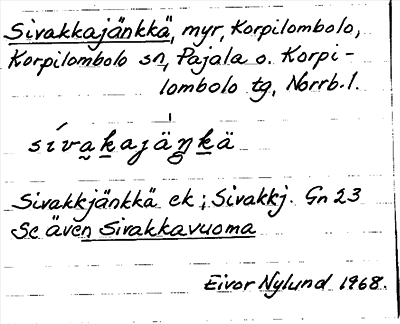 Sivakkajänkkä, myr, Korpilombolo,
Korpilombolo sn, Pajala o. Korpi-
lombolo tg, Norrb. l.
sívak̲ajäŋk̲ä
Sivakkjänkkä ek; Sivakkj. Gn 23
Se även Sivakkavuoma
Eivor Nylund 1968.